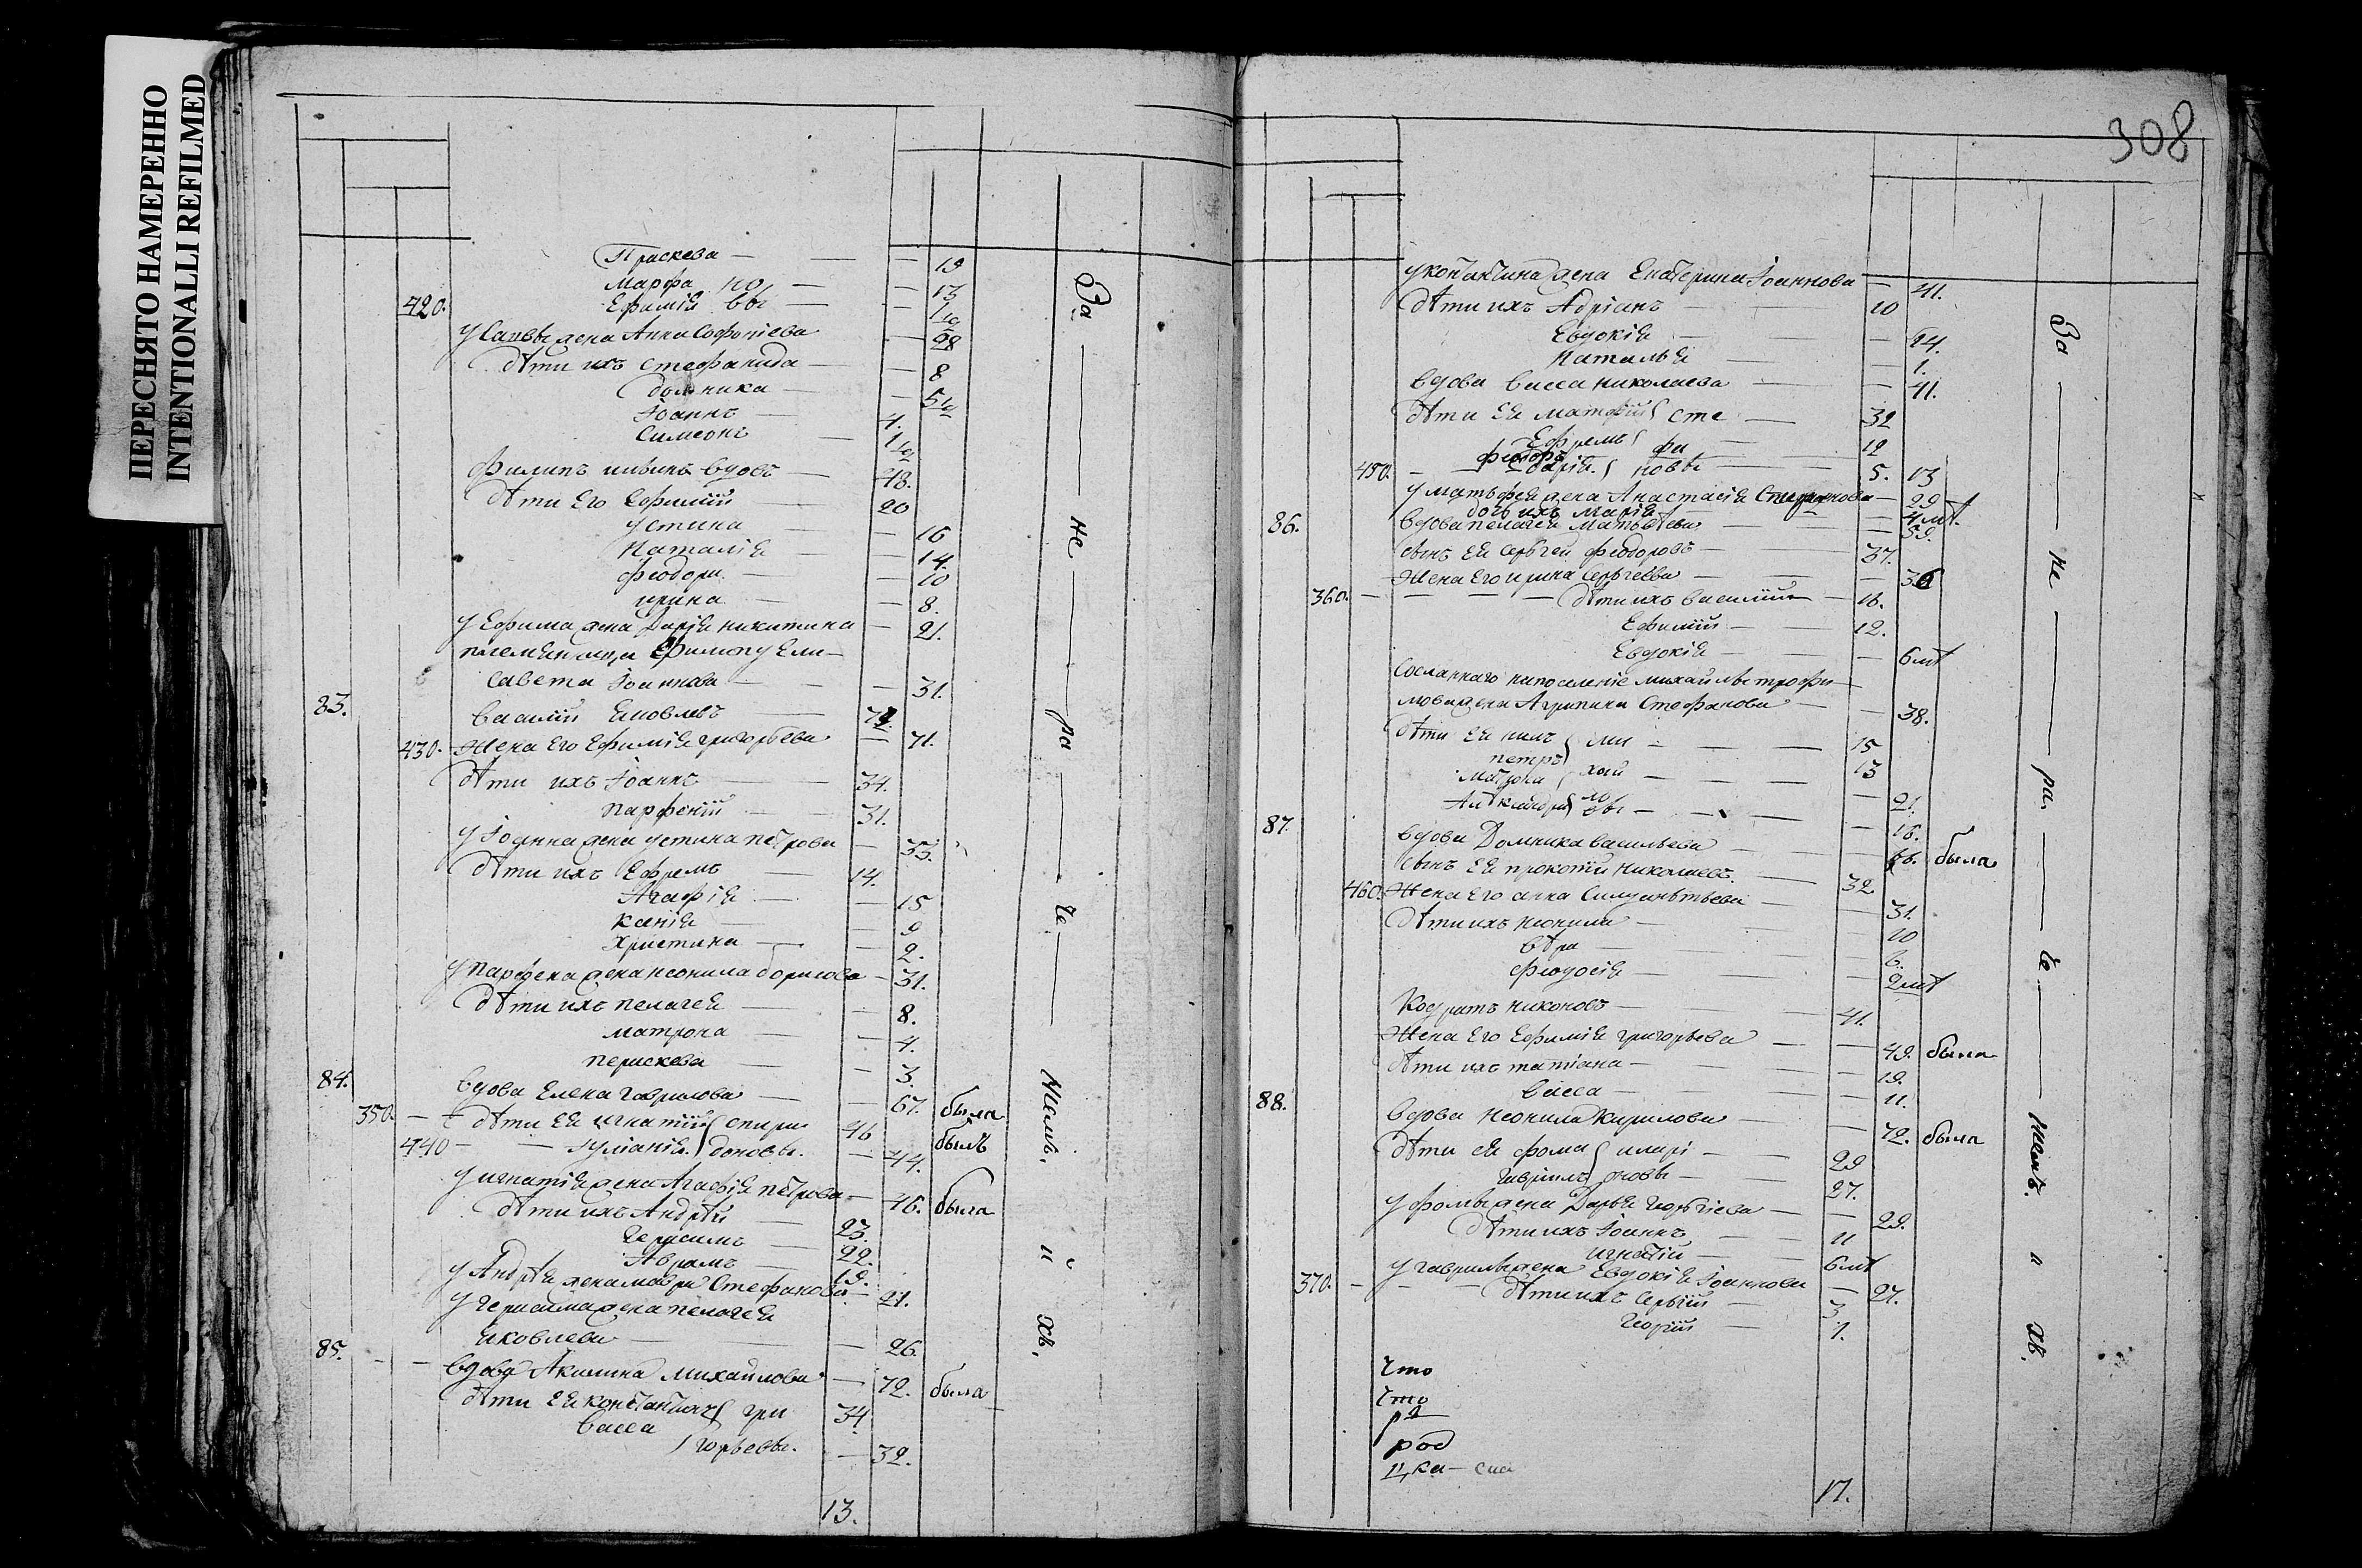 ПЕРЕСНЯТО НАМЕРЕННО
INTENTIONALLI REFILMED
Праскева — 19
Марфа но — 13
420. Ефимій вы — 1/2
у Савы жена Анна Софонієва — 28
дѣти ихъ Стефанида — 8
Домника — 5 1/2
Іоаннъ — 4.
Симеонъ — 1 1/2
Филипъ ильинъ вдовъ — 48.
дѣти Его Ефимій — 20
устина — 16
Наталія — 14.
феодора — 10
ирина — 8.
у Ефима жена Дарія никитина — 21.
племянница Филипу Ели-
савета Іоаннова — 31.
83. Василій Яковлевъ — 72.
430. Жена Его Ефимія григорьева — 71.
дѣти ихъ Іоаннъ — 34.
Парфеній — 31.
у Іоанна жена устина петрова — 35.
дѣти ихъ Ефремъ — 14.
Агафія — 15
Ксенія — 9
Христина — 2.
у Парфена жена неонила борисова — 31.
дѣти ихъ пелагея — 8.
матрона — 4.
пераскева — 3.
84. вдова Елена гаврилова — 67. была
350. дѣти Ея игнатій спири 46 былъ
440 — Іуліанія доновы. — 44.
у игнатія жена Агафія петрова — 46. была
дѣти ихъ Андрей — 23.
Герасимъ — 22.
Аврамъ — 19.
у Андрея жена мавра Стефанова — 21.
у герасима жена пелагея
яковлева — 26.
85. вдова Акилина Михайлова — 72. была
дѣти Ея константинъ гри 34
васса
горьевы. — 32.
13.
За — не — ра — че — ніемъ. и хв.
308
у константина жена Екатерина Іоаннова — 41.
дѣти ихъ Адріанъ — 10
Евдокія — 14.
Наталья — 1.
вдова васса николаева — 41.
дѣти Ея матфій сте — 32
Ефремъ фа — 12
феодоръ
450. Дарія новы — 5. 13
у матьфея жена Анастасія — 29
дочь ихъ марія — 4 мѣ.
86. вдова пелагея матьвѣева — 59.
сынъ Ея сергей феодоровъ — 37.
Жена Его ирина сергеева — 36
360. — дѣти ихъ василій — 16.
Ефимій — 12.
Евдокія — 6 мѣ
Сосланнаго напоселеніе михайлы трофи
мова жена Агрипина Стефанова — 38.
дѣти Ея нилъ ми — 15
петръ хай — 13
матрона ло — 21.
Александра вы — 16.
87. вдова Домника васильева — была
сынъ Ея прокопій николаевъ — 32
460. Жена Его анна — 31.
дѣти ихъ неонила — 10
вѣра — 6.
феодосія — 2 мѣ
Кодратъ никоновъ — 41.
Жена Его Ефимія григорьева — 49. была
дѣти ихъ татіана — 19.
васса — 11.
88. вдова неонила Кирилова — 72. была
дѣти ея фома илари — 29
гаврилъ оновы — 27.
у фомы жена Дарья — 29.
дѣти ихъ Іоаннъ — 11
игнатій — 6 мѣ
у гаврилы жена Евдокія Іоаннова — 27.
370. — дѣти ихъ Сергій — 3
георгій — 1.
Что
Что
ра
род
ц, ка — сна
17.
За — не — ра — че — ніемъ. и хв.